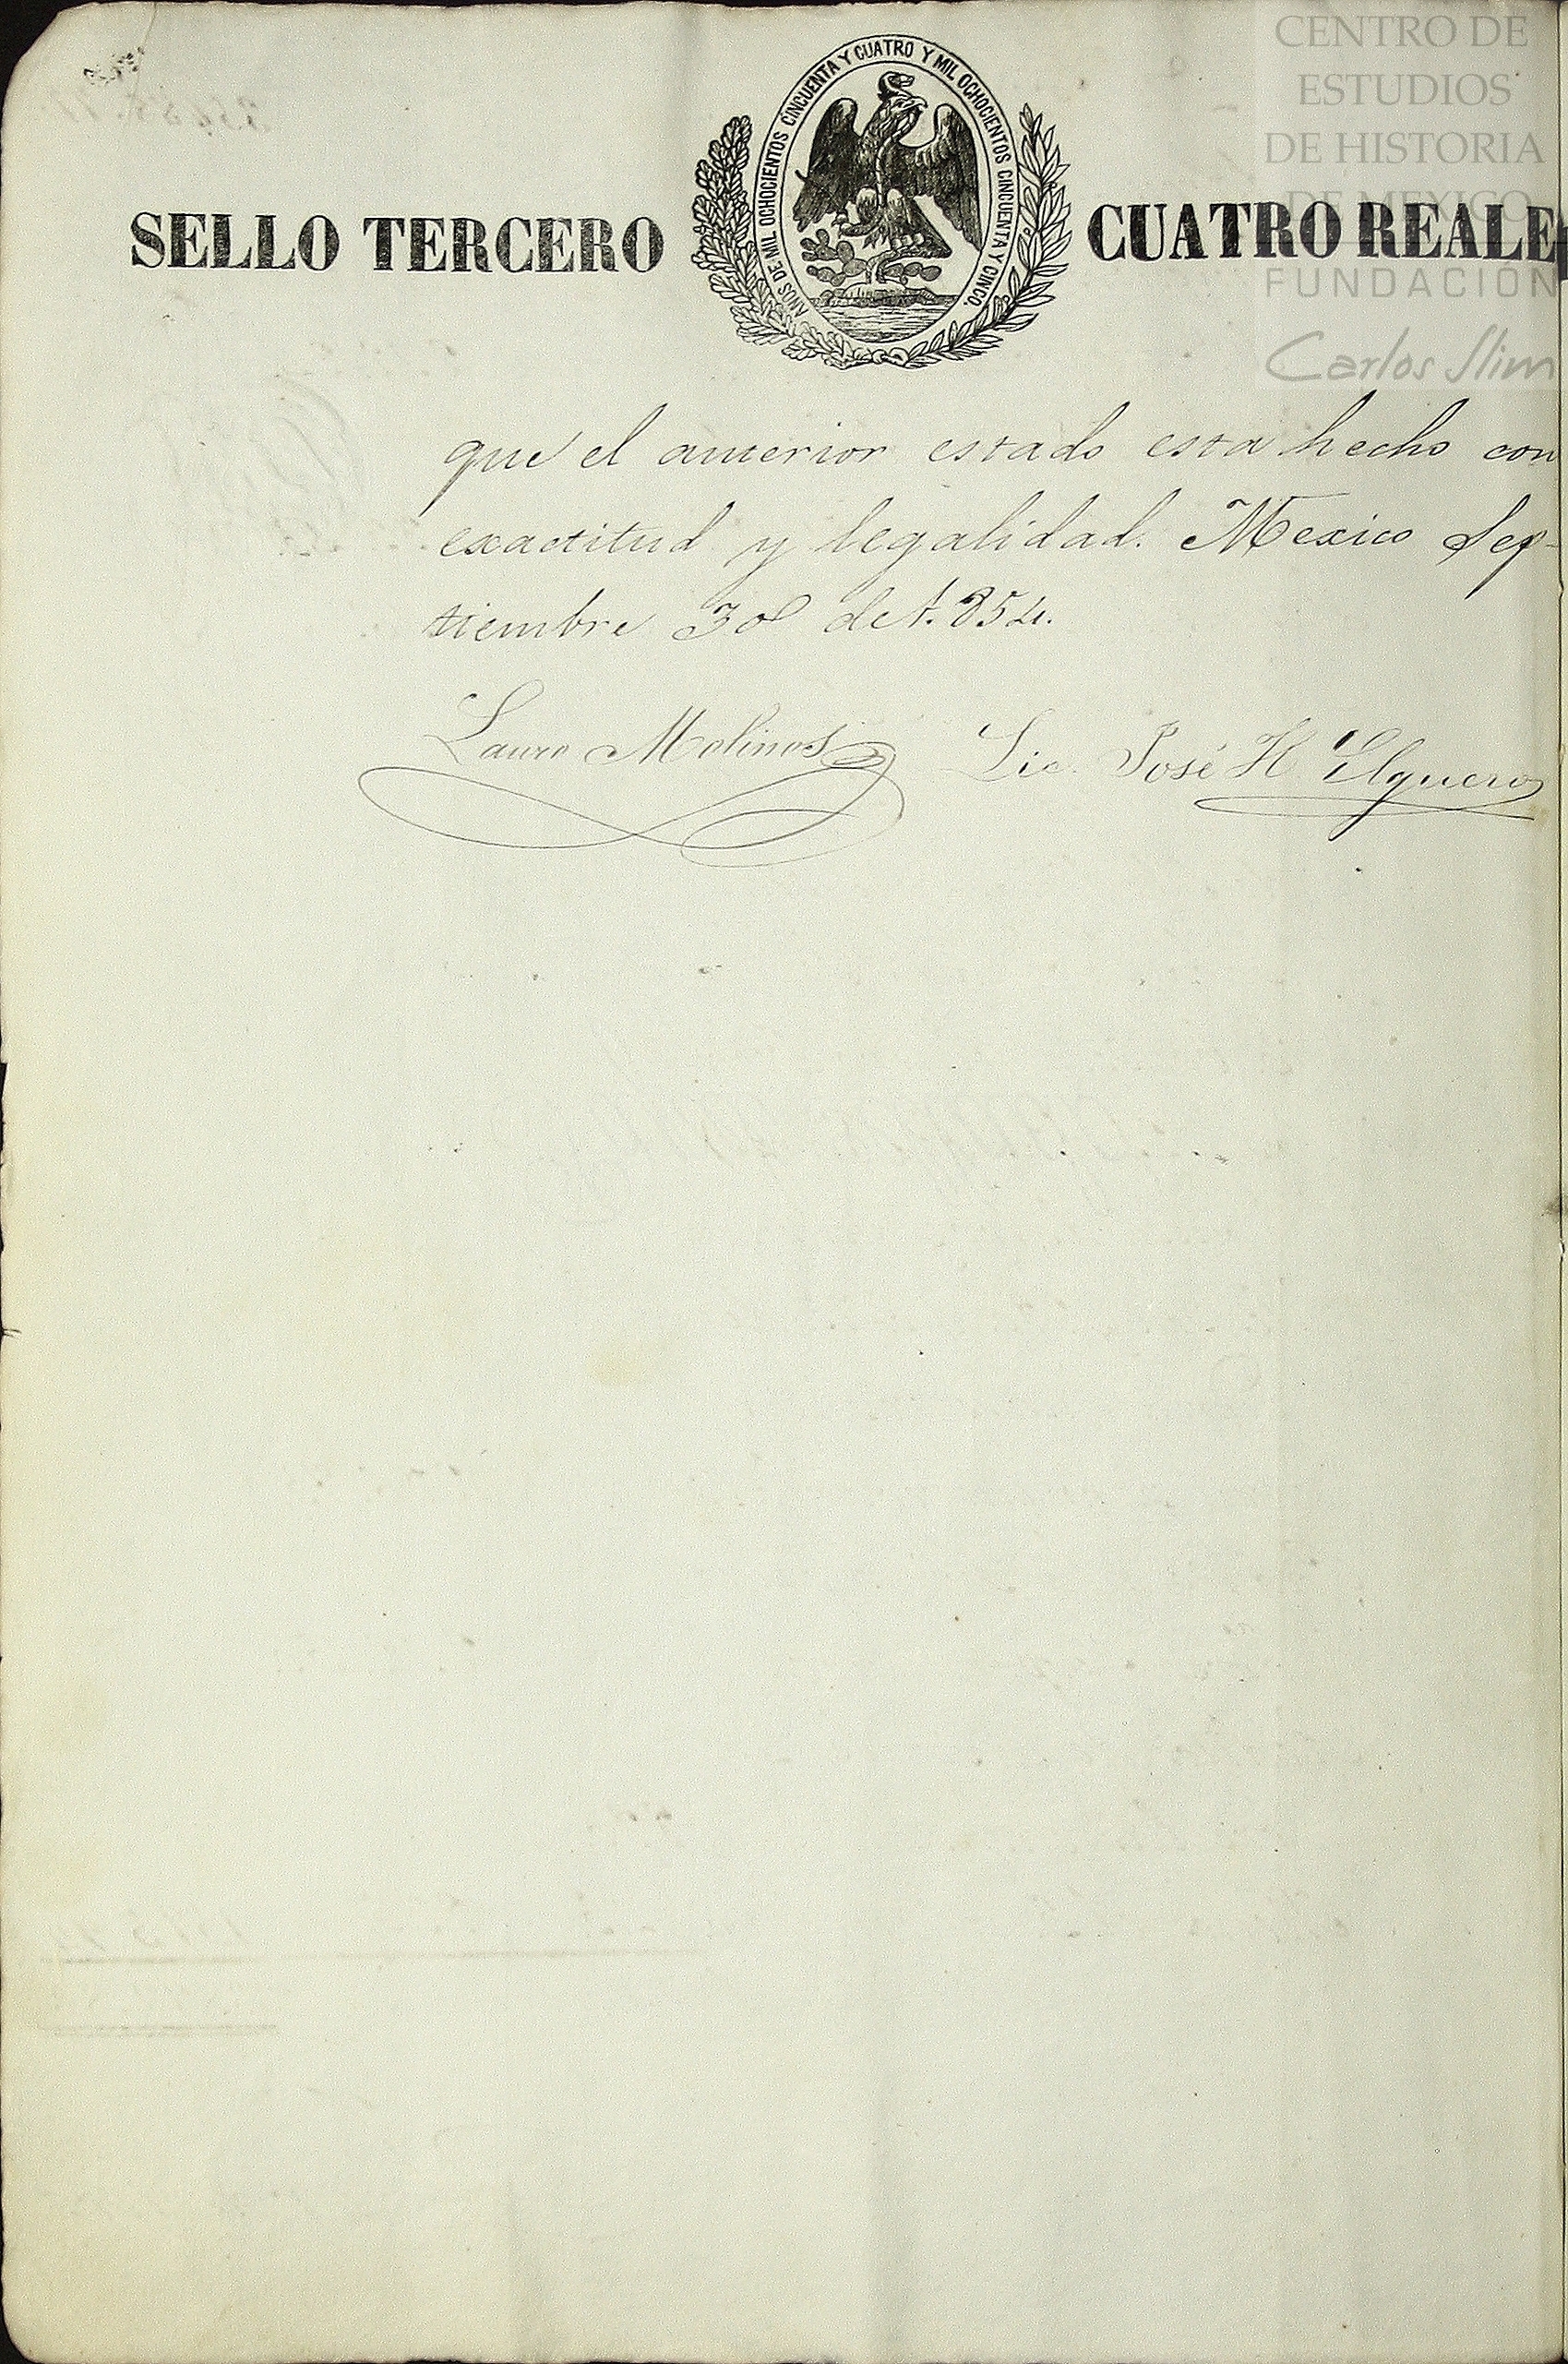 CENTRO DE
ESTUDIOS
DE HISTORIA
DE MEXICO
FUNDACIÓN
Carlos Slim
SELLO TERCERO
AÑOS DE MIL OCHOCIENTOS CINCUENTA Y CUATRO Y MIL OCHOCIENTOS CINCUENTA Y CINCO.
CUATRO REALE
que el anterior estado esta hecho con
exactitud y legalidad. Mexico Sep-
tiembre 30 de 1.854.
Lauro Molinos
Lic. José H Elguero